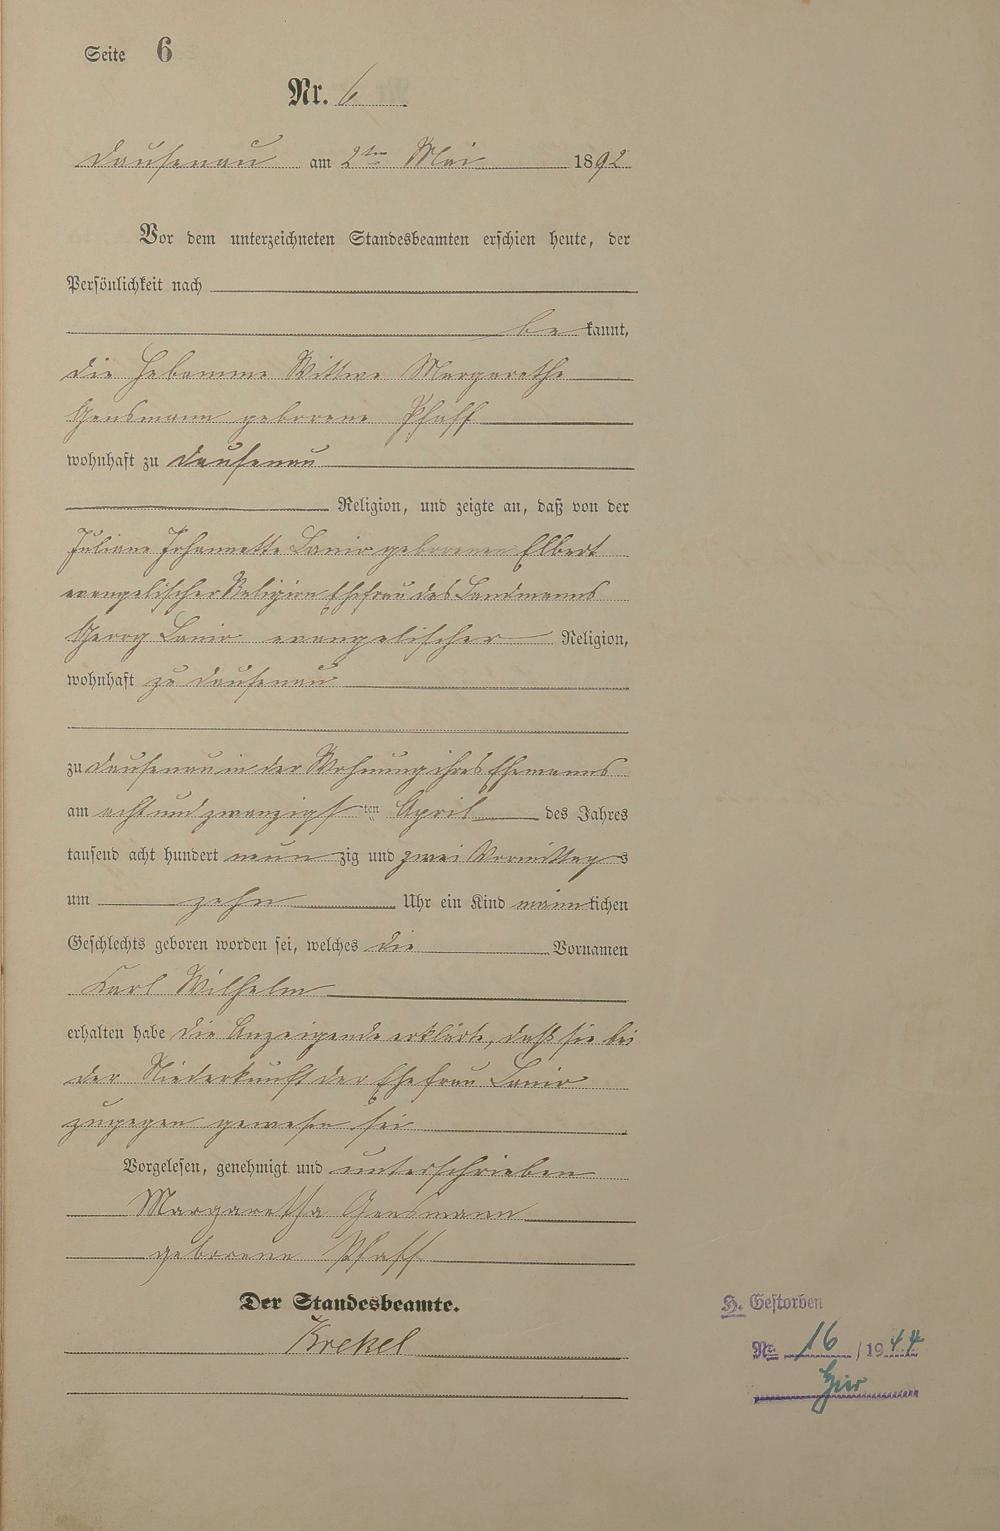 Seite 6
Nr. 6
Dausenau am 2ten Mai 1892
Vor dem unterzeichneten Standesbeamten erschien heute, der
Persönlichkeit nach
bekannt,
die Hebamme Wittwe Margarethe
Gensmann geborene Pfaff
wohnhaft zu Dausenau
Religion, und zeigte an, daß von der
Juliane Johannette Lanio geborenen Elbert
evangelischer Religion Ehefrau des Landmanns
Georg Lanio evangelischer Religion,
wohnhaft zu Dausenau
zu Dausenau in der Wohnung ihres Ehemanns
am acht und zwanzigsten April des Jahres
tausend acht hundert neunzig und zwei Vormittags
um zehn Uhr ein Kind männlichen
Geschlechts geboren worden sei, welches die Vornamen
Karl Wilhelm
erhalten habe die Anzeigende erklärte, daß sie bei
der Niederkunft der Ehefrau Lanio
zugegen gewesen sei
Vorgelesen, genehmigt und unterschrieben
Margaretha Gensmann
geborene Pfaff
Der Standesbeamte.
Krekel
H. Gestorben
Nr. 16/1944
hier